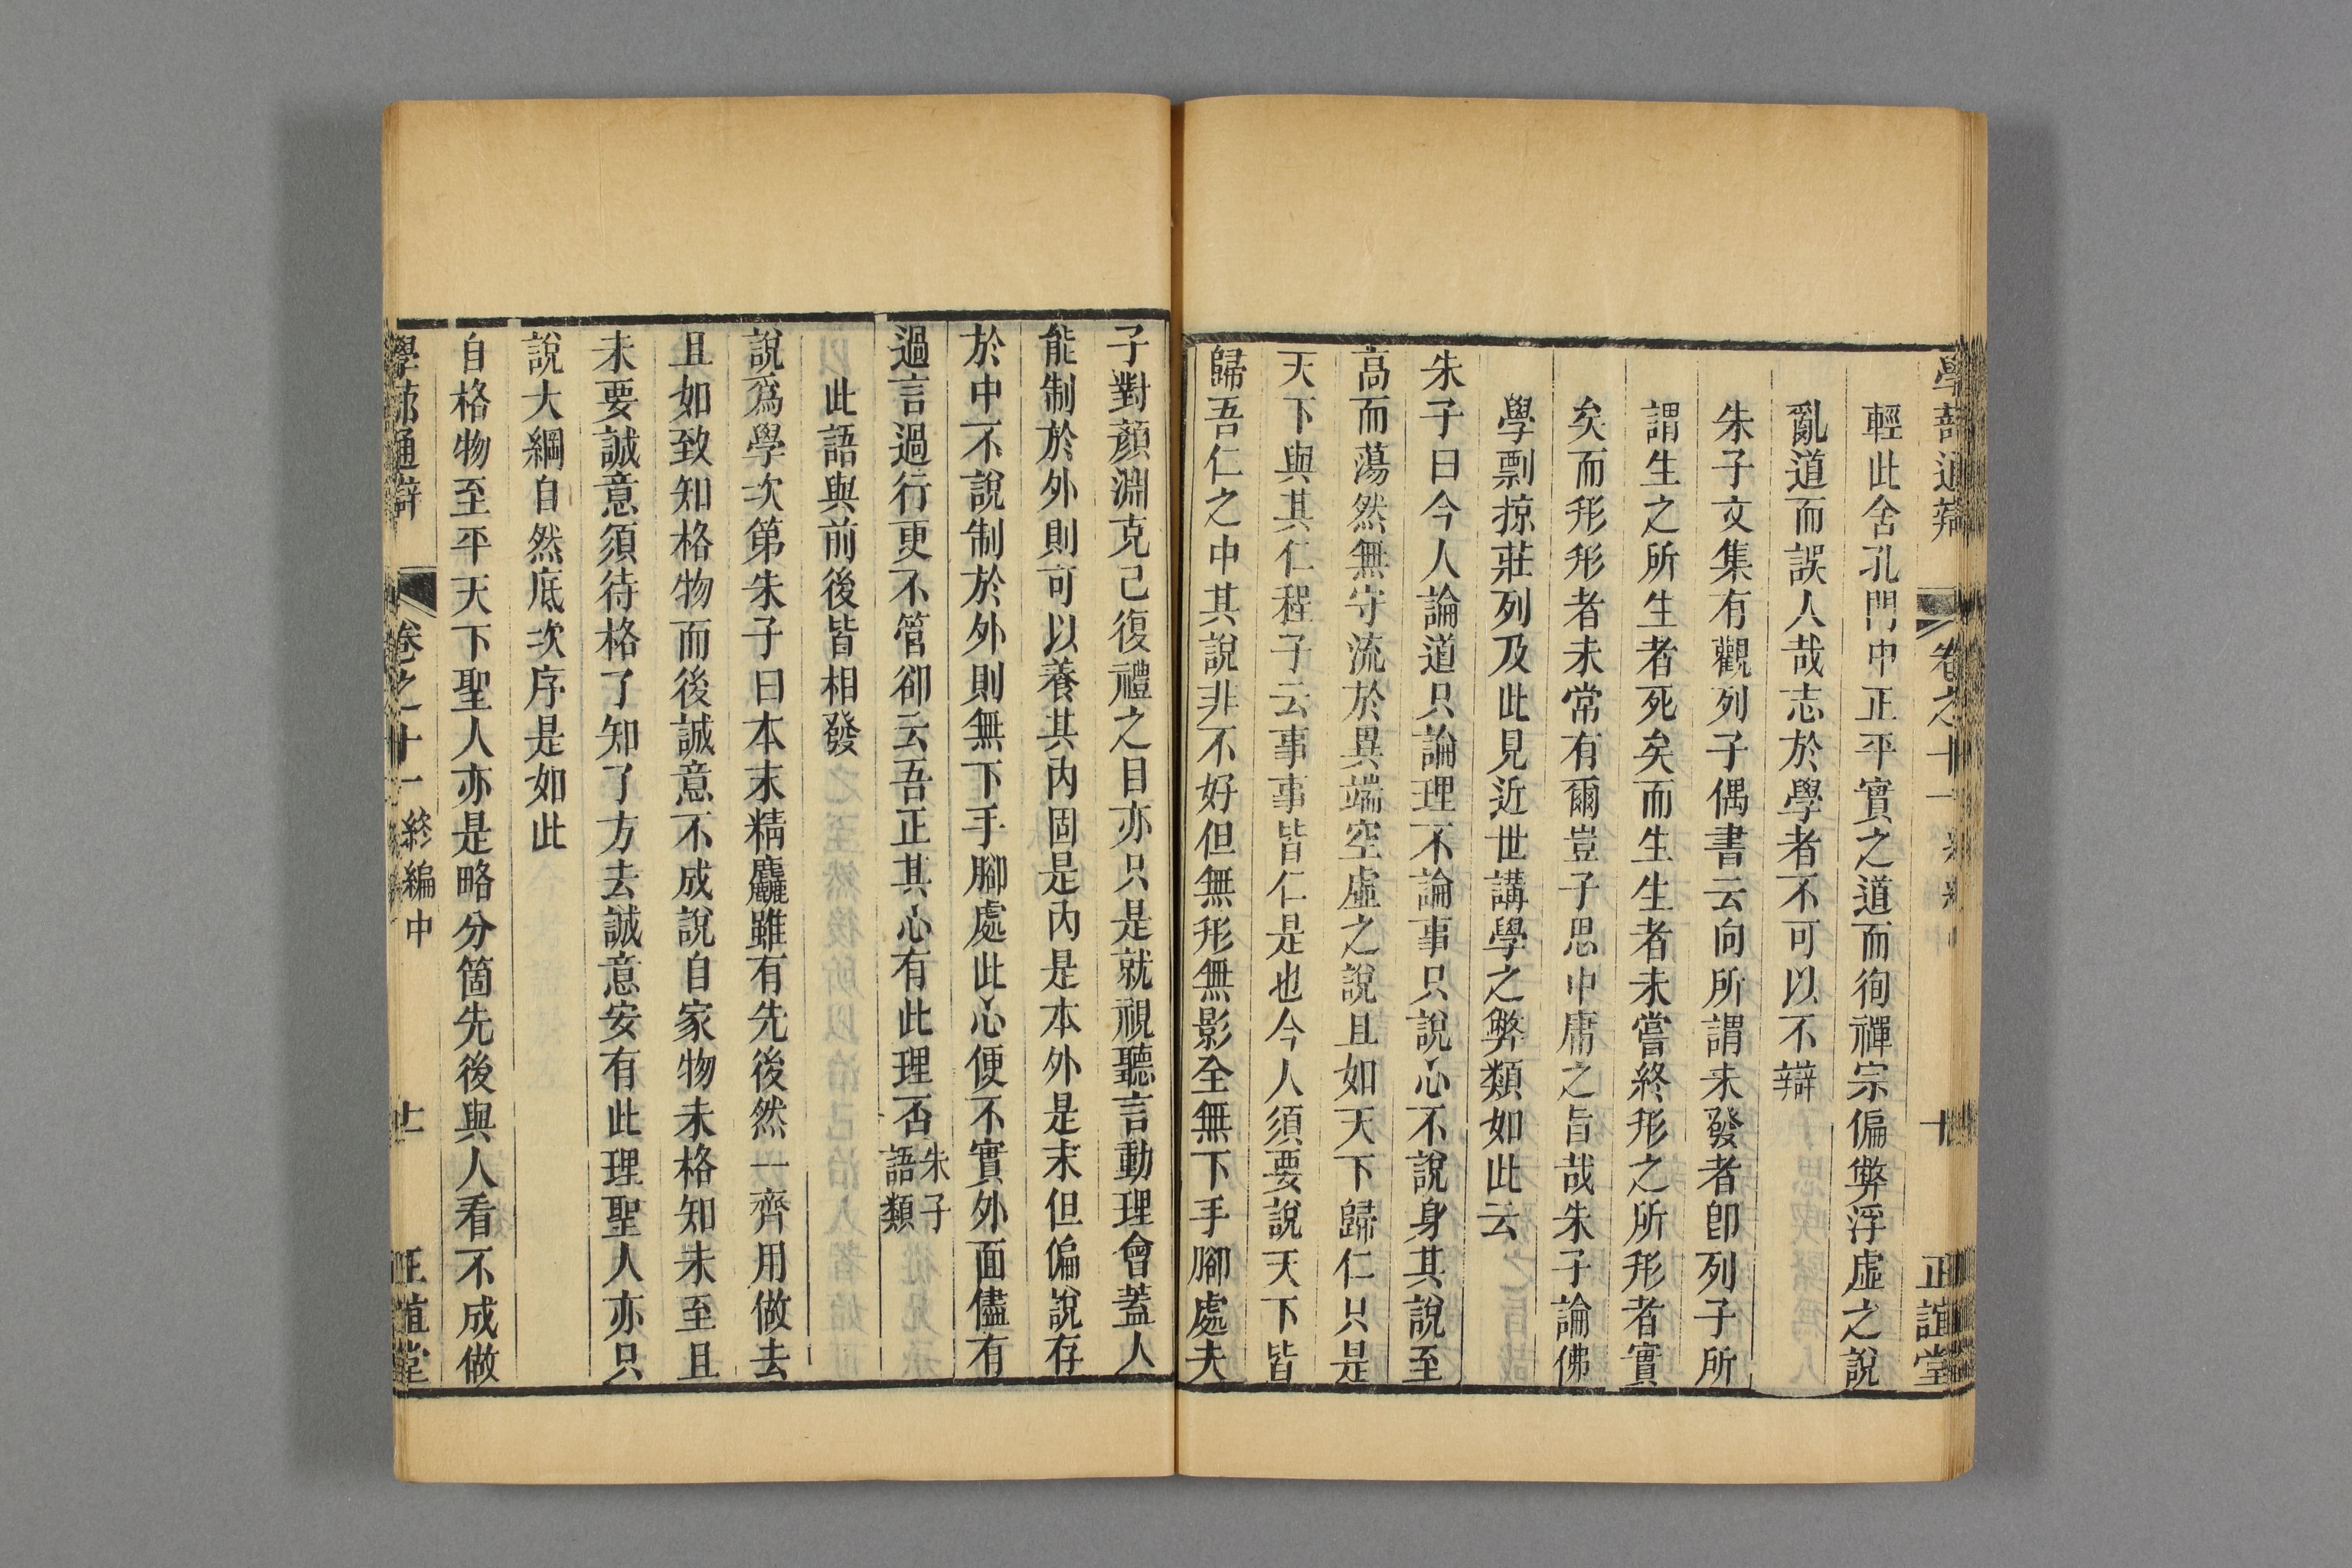 學蔀通辯 卷之十一 終編中 十 正誼堂
輕此舍孔門中正平實之道而徇禪宗偏弊浮虛之說
亂道而誤人哉志於學者不可以不辯
朱子文集有觀列子偶書云向所謂未發者卽列子所
謂生之所生者死矣而生生者未嘗終形之所形者實
矣而形形者未常有爾豈子思中庸之旨哉朱子論佛
學剽掠莊列及此見近世講學之弊類如此云
朱子曰今人論道只論理不論事只說心不說身其說至
高而蕩然無守流於異端空虛之說且如天下歸仁只是
天下與其仁程子云事事皆仁是也今人須要說天下皆
歸吾仁之中其說非不好但無形無影全無下手腳處夫
子對顏淵克己復禮之目亦只是就視聽言動理會蓋人
能制於外則可以養其內固是內是本外是末但偏說存
於中不說制於外則無下手腳處此心便不實外面儘有
過言過行更不管卻云吾正其心有此理否朱子語類
此語與前後皆相發
說爲學次第朱子曰本末精麤雖有先後然一齊用做去
且如致知格物而後誠意不成說自家物未格知未至且
未要誠意須待格了知了方去誠意安有此理聖人亦只
說大綱自然底次序是如此
自格物至平天下聖人亦是略分箇先後與人看不成做
學蔀通辯 卷之十一 終編中 十一 正誼堂